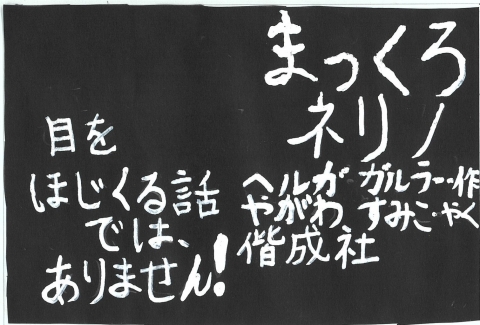 まっくろ
ネリノ
ヘルガ ガルラー・作
やがわ すみこ・やく
偕成社
目を
ほじくる話
では、
ありません!